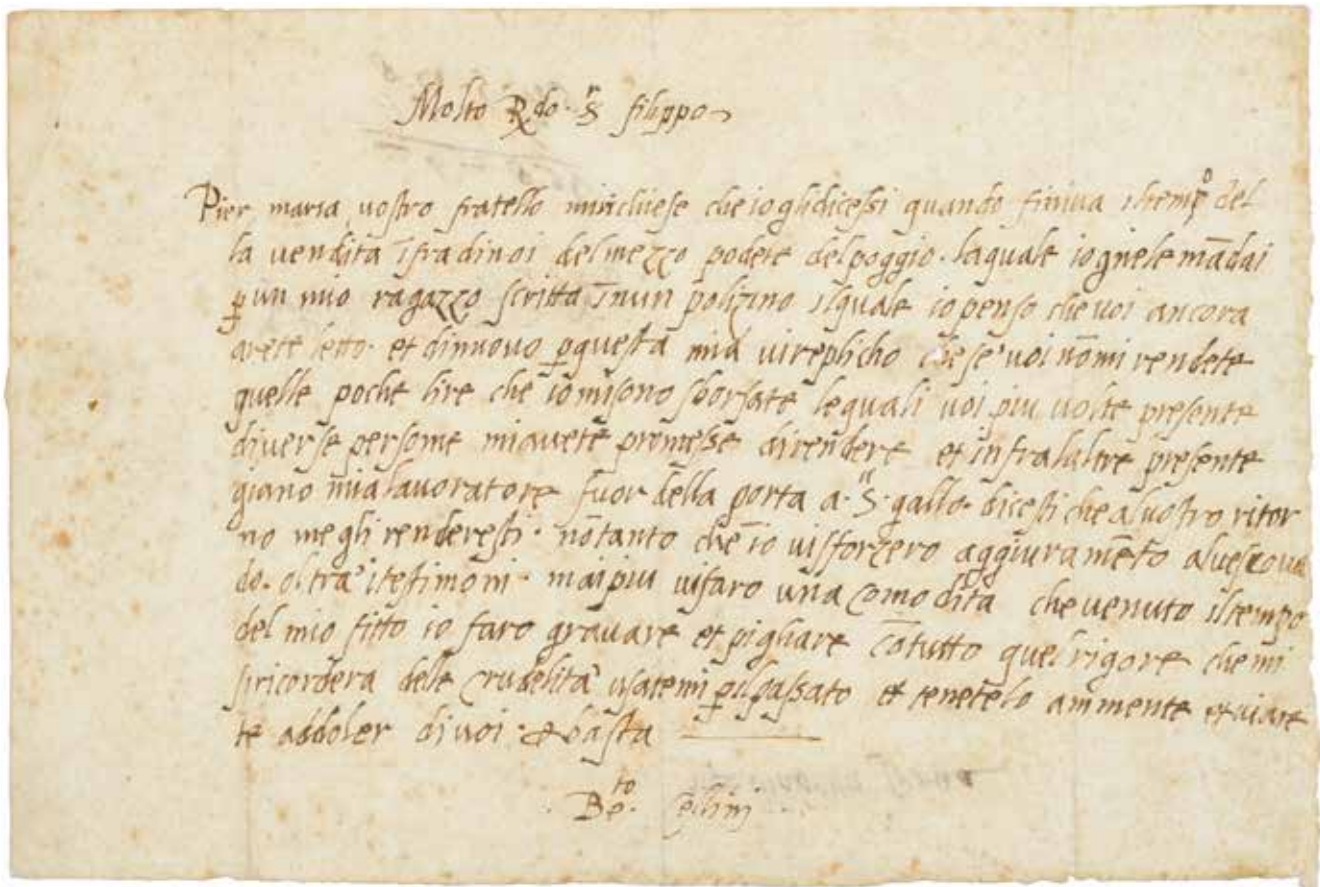 Molto R.do S.r filippo
Pier maria vostro fratello mirichiese che io gli dicessi quando finiva il temp.o del
la vendita ifradinoi del mezzo podere del poggio. laquale io gnele mādai
p un mio ragazzo scritta īnun polizino ilquale io penso che voi ancora
arete letto. et dinnovo pquesta mia vi replicho che se voi nōmi rendete
quelle poche lire che io misono sborsate lequali voi piu volte presente
diverse persome miavete promesse direndere et infralaltre presente
giano mialavoratore fuor della porta a S. gallo. dicesti che alvostro ritor
no megli renderesti. nōtanto che io visforzero aggiuramēto alvescova
do. oltra itestimoni. maipiu vifaro una comodita che venuto iltempo
del mio fitto io faro gravare et pigliare cōtutto quel rigore che mi
siricordera delle crudelita usatemi pilpassato et tenetelo ammente
te addoler divoi. & basta
B.to Cellini